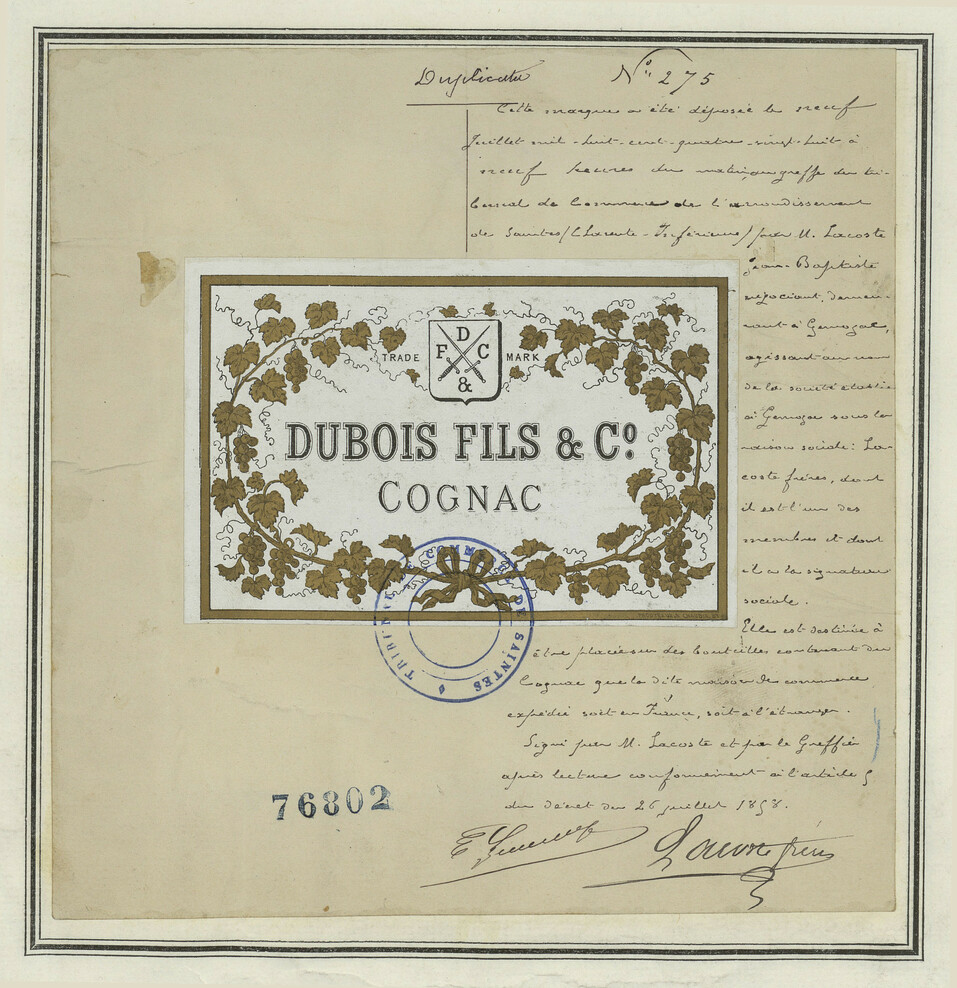 Duplicata
N° 275
Cette marque a été déposée le neuf
Juillet mil-huit-cent-quatre-vingt-huit à
neuf heures du matin, au greffe du tri-
bunal de Commerce de l'arrondissement
de Saintes (Charente-Inférieure) par M. Lacoste
Jean-Baptiste
négociant, demeu-
rant à Gemozac,
agissant au nom
de la société établie
à Gemozac sous la
raison sociale: La-
coste frères, dont
il est l'un des
membres et dont
il a la signature
sociale.
Elle est destinée à
être placée sur des bouteilles contenant du
Cognac que la dite maison de commerce
expédie soit en France, soit à l'étranger.
Signé par M. Lacoste et par le Greffier
après lecture conformément à l'article 5
du décret du 26 juillet 1858.
Lacoste frères
TRADE
MARK
D
F C
&
DUBOIS FILS & Cº.
COGNAC
TRIBUNAL DE COMMERCE DE SAINTES
76802